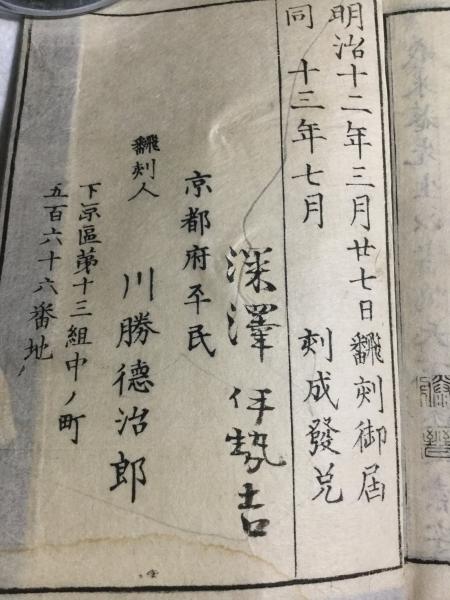 明治十二年三月廿七日飜刻御屆
同 十三年七月 刻成發兌
深澤伊勢吉
京都府平民
飜刻人 川勝德治郎
下京區第十三組中ノ町
五百六十六番地